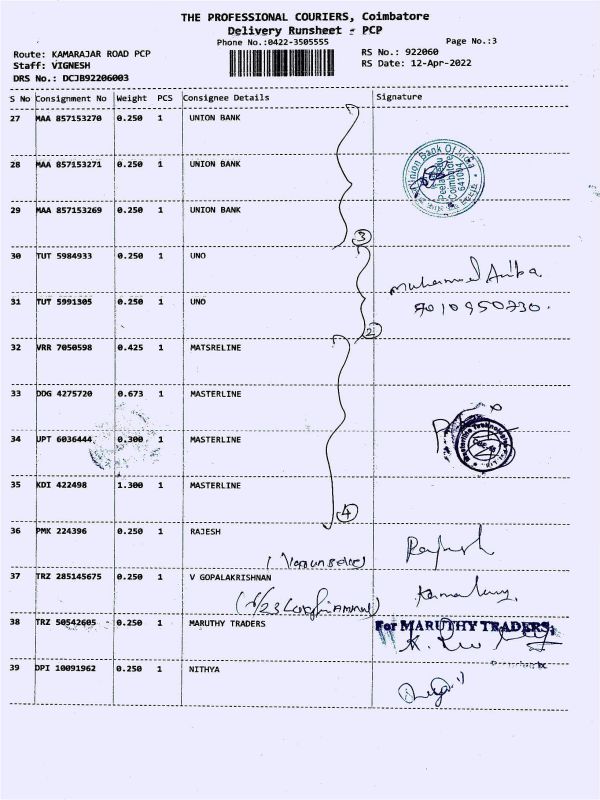 THE PROFESSIONAL COURIERS, Coimbatore
Delivery Runsheet - PCP
Phone No.:0422-3505555
Page No.:3
Route: KAMARAJAR ROAD PCP
RS No.: 922060
Staff: VIGNESH
RS Date: 12-Apr-2022
DRS No.: DCJB92206003
S No Consignment No Weight PCS Consignee Details Signature
27 MAA 857153270 0.250 1 UNION BANK
28 MAA 857153271 0.250 1 UNION BANK
Union Bank Of India
Coimbatore
641004
29 MAA 857153269 0.250 1 UNION BANK
3
30 TUT 5984933 0.250 1 UNO
Muhammed
31 TUT 5991305 0.250 1 UNO
2
32 VRR 7050598 0.425 1 MATSRELINE
33 DDG 4275720 0.673 1 MASTERLINE
34 UPT 6036444 0.300 1 MASTERLINE
35 KDI 422498 1.300 1 MASTERLINE
4
36 PMK 224396 0.250 1 RAJESH
Rajesh
37 TRZ 285145675 0.250 1 V GOPALAKRISHNAN
38 TRZ 50542605 0.250 1 MARUTHY TRADERS
For MARUTHY TRADERS,
39 DPI 10091962 0.250 1 NITHYA